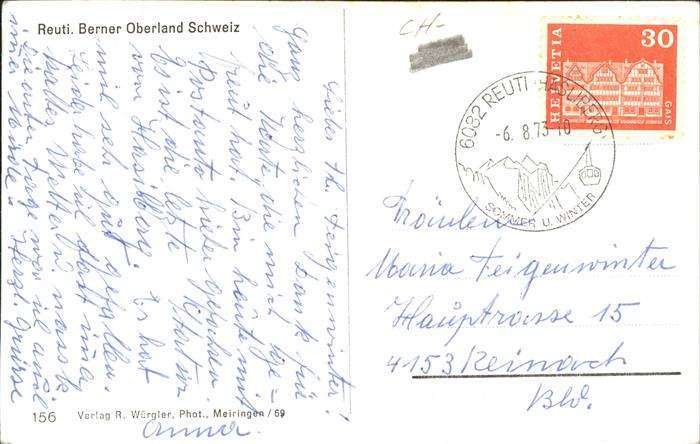 Reuti. Berner Oberland Schweiz
CH-
HELVETIA
30
GAIS
6082 REUTI-HASLIBERG
-6. 8.73-10
SOMMER U. WINTER
Liebes Frl. Feigenwinter!
Ganz herzlichen Dank für
die Karte, die mich sehr
freut hat. Bin heute mit
Postauto hieher gefahren.
Es ist die letzte Station
vom Hasliberg. Es hat
mir sehr gut gefallen.
Leider habe ich
kaltes Wetter u. nass
war ich
Herzl. Grüsse
Anna.
Fräulein
Maria Feigenwinter
Hauptrasse 15
4153 Reinach
Bld.
156 Verlag R. Würgler, Phot., Meiringen/69